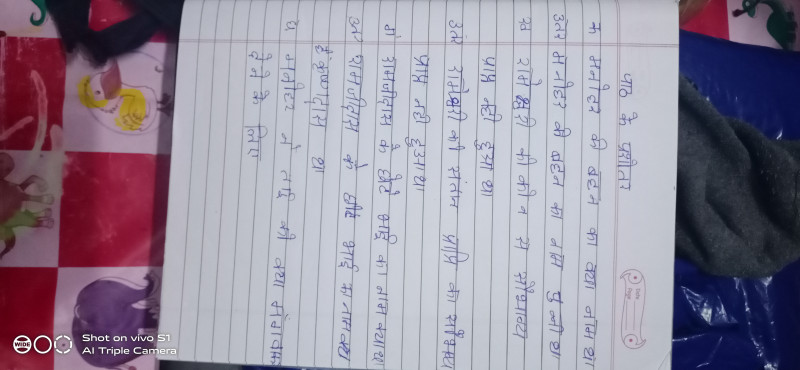 पाठ के प्रश्नोतर
क मनोहर की बहन का क्या नाम था
उत्तर मनोहर की बहन का नाम चुन्नी था
ख रामेश्वरी को कौन सा सौभाग्य
प्राप्त नही हुआ था
उत्तर रामेश्वरी को संतान प्राप्ति का सौभाग्य
प्राप्त नही हुआ था
ग रामजीदास के छोटे भाई का नाम क्या था
उत्तर रामजीदास के छोटे भाई का नाम
कृष्णदास था
घ मनोहर ने ताई को क्या
देने के लिए
Shot on vivo S1
AI Triple Camera
WIDE